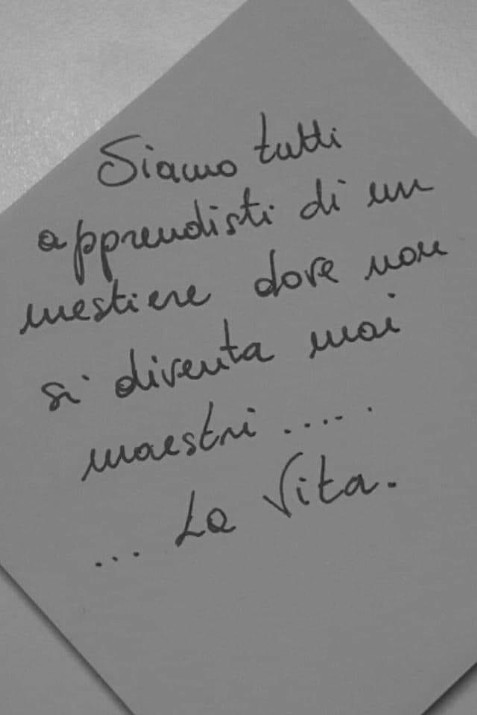 Siamo tutti
apprendisti di un
mestiere dove non
si diventa mai
maestri ......
... La Vita.